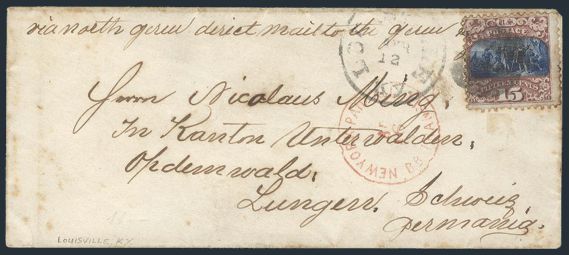 via north germ direct mail to the germ
12
U.S. POSTAGE
FIFTEEN CENTS
15
Herrn Nicolaus Ming,
In Kanton Unterwalden,
NEW YORK
PAID
Opdemwald,
Lungern, Schweiz
Permania.
LOUISVILLE KY